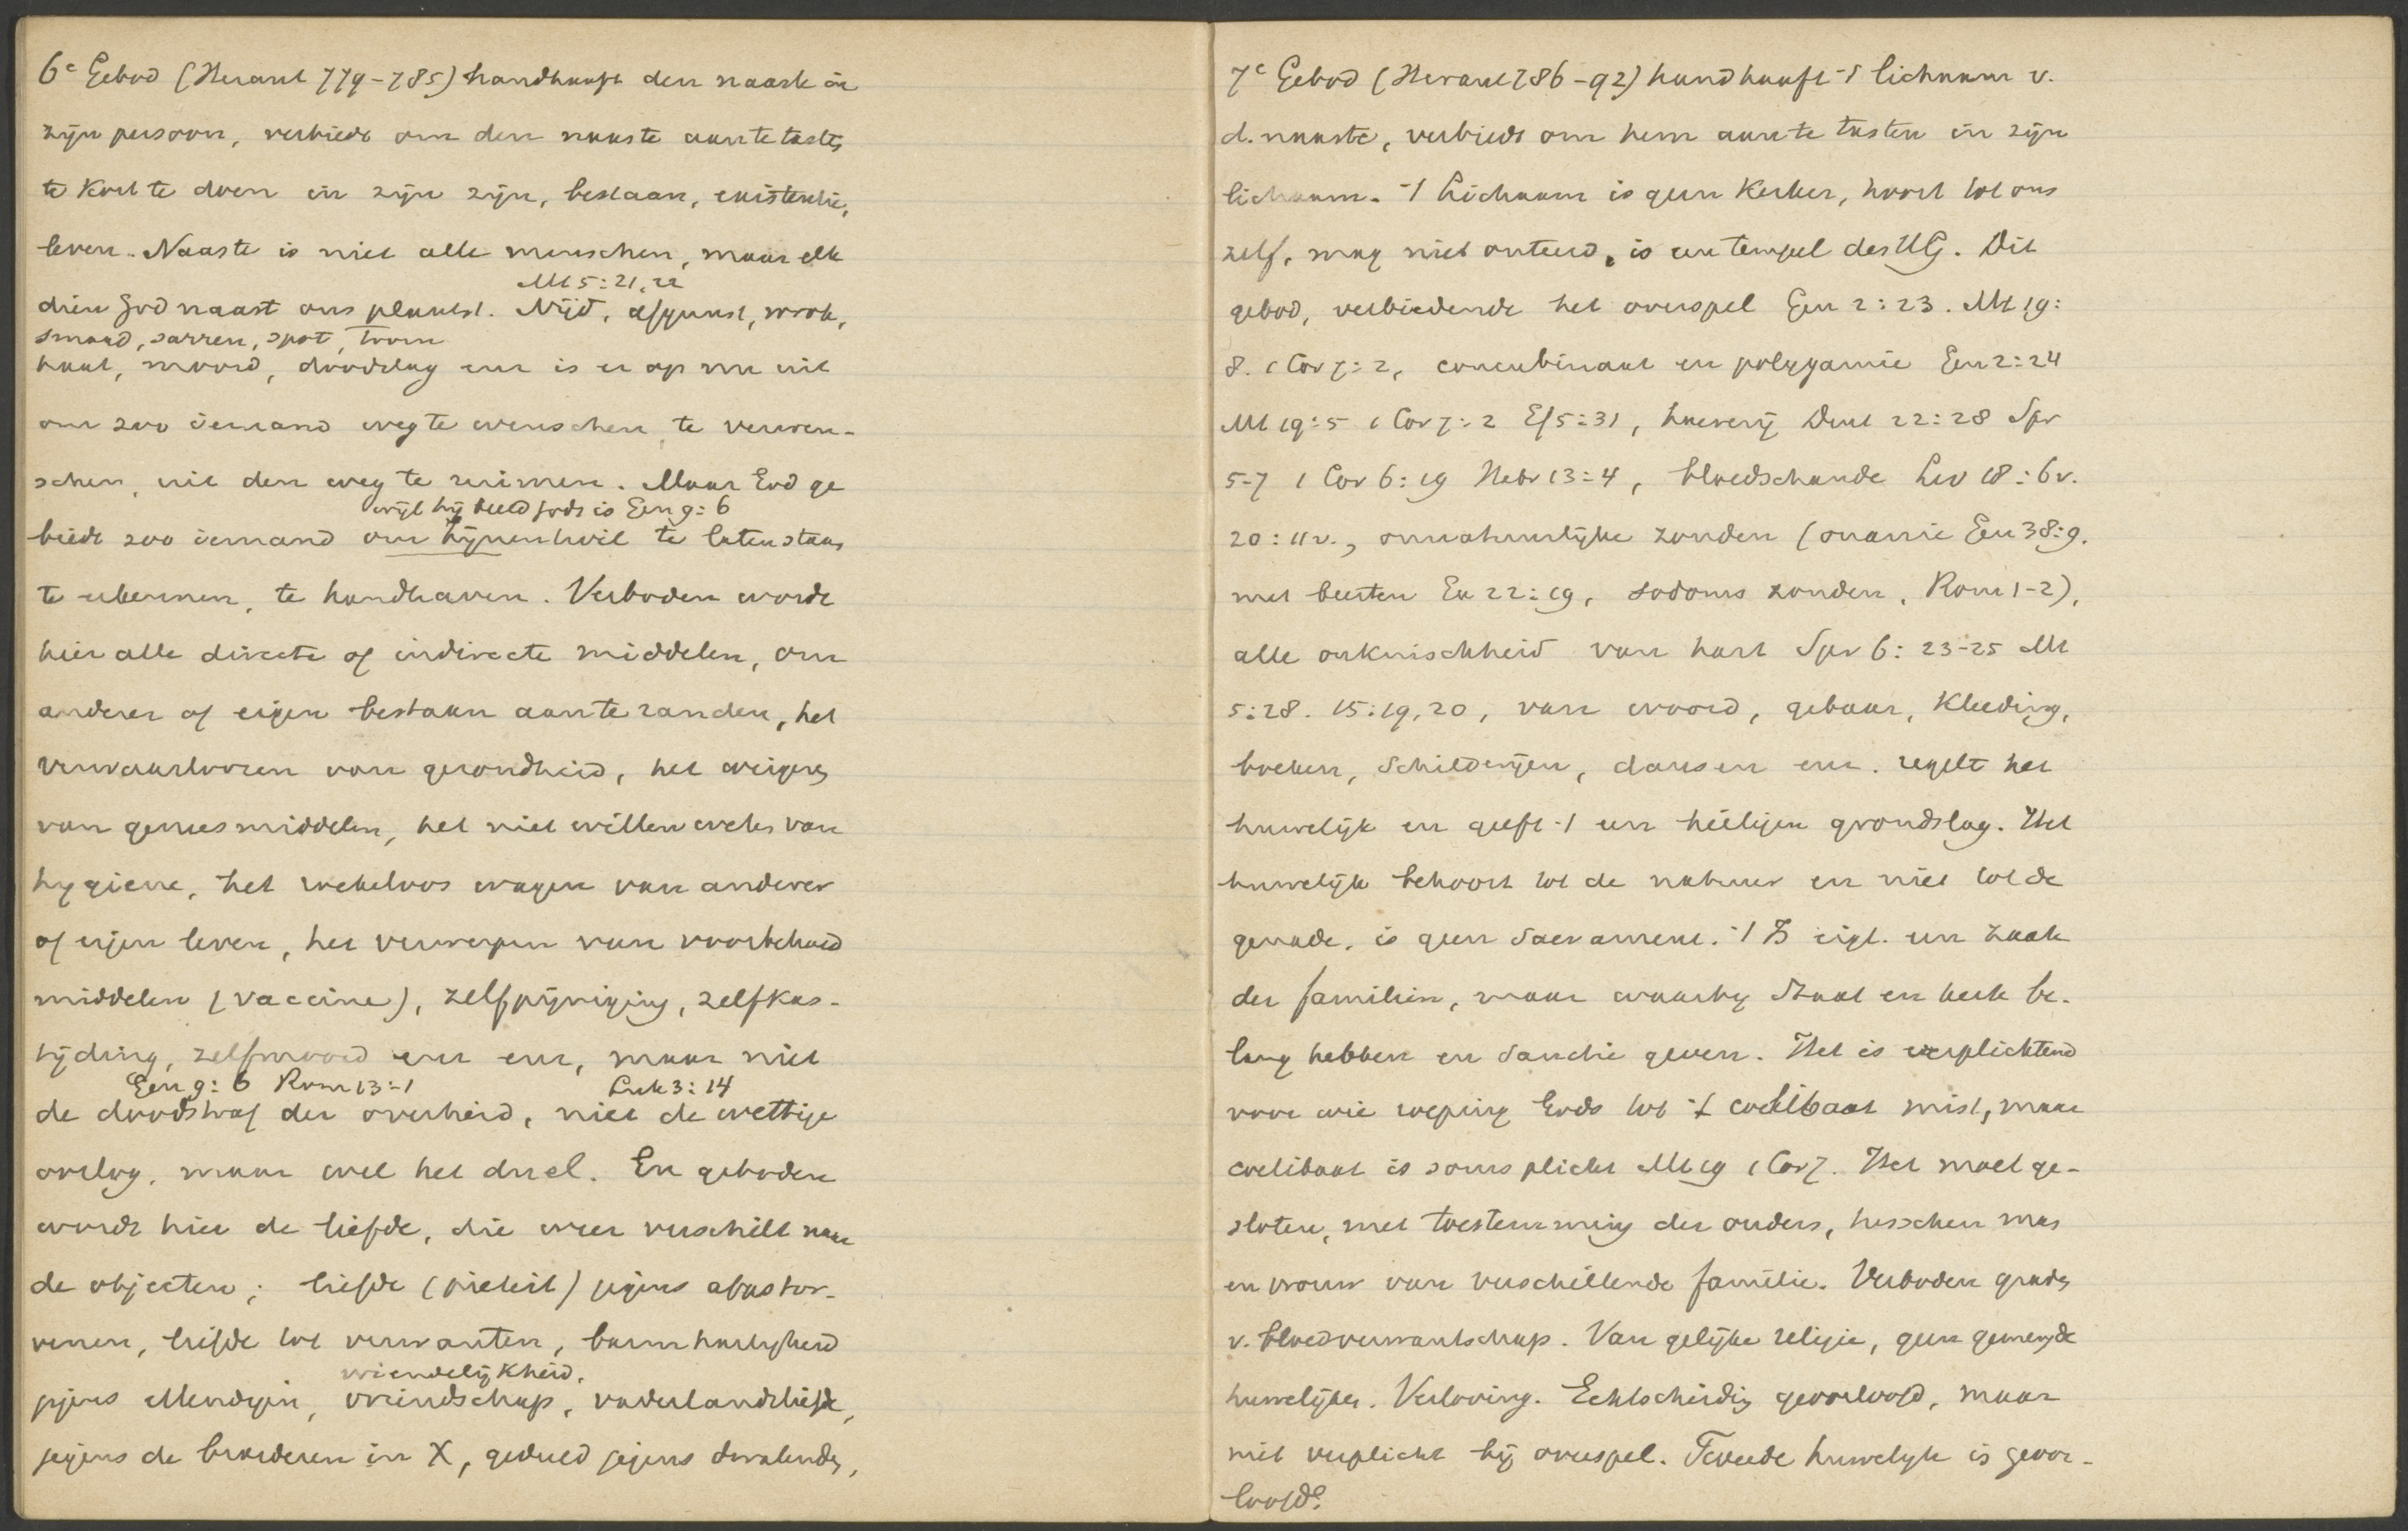 6e Gebod (Heraut 779-785) handhaaft den naaste in
zijn persoon, verbiedt om den naaste aan te tasten,
te kort te doen in zijn zijn, bestaan, existentie,
leven. Naaste is niet alle menschen, maar elk
Mt 5:21,22
dien God naast ons plaatst. Nijd, afgunst, wrok,
smaad, sarren, spot, toorn
haat, moord, doodslag enz is er op uit
om zoo iemand weg te wenschen, te verwen-
schen, uit den weg te ruimen. Maar God ge
wijl hij beeld Gods is Gen 9:6
biedt zoo iemand om Zijnentwil te laten staan,
te erkennen, te handhaven. Verboden wordt
hier alle directe of indirecte middelen, om
anderer of eigen bestaan aan te randen, het
verwaarloozen van gezondheid, het weigeren
van geneesmiddelen, het niet willen weten van
hygiene, het roekeloos wagen van anderer
of eigen leven, het verwerpen van voorbehoed
middelen (vaccine), zelfpijniging, zelfkas-
tijding, zelfmoord enz enz, maar niet
Gen 9:6 Rom 13:1 Luk 3:14
de doodstraf der overheid, niet de wettige
oorlog, maar wel het duel. En geboden
wordt hier de liefde, die weer verschilt naar
de objecten; liefde (pieteit) jegens afgestor-
venen, liefde tot verwanten, barmhartigheid
vriendelijkheid,
jegens ellendigen, vriendschap, vaderlandsliefde,
jegens de broederen in X, geduld jegens dwalenden,
7e Gebod (Heraut 786-92) handhaaft 't lichaam v.
d. naaste, verbiedt om hem aan te tasten in zijn
lichaam. 't Lichaam is geen kerker, hoort tot ons
zelf, mag niet onteerd, is een tempel des HG. Dit
gebod, verbiedende het overspel Gen 2:23. Mt 19:
8. 1 Cor 7:2, concubinaat en polygamie Gen 2:24
Mt 19:5 1 Cor 7:2 Ef 5:31, hoererij Deut 22:28 Spr
5-7 1 Cor 6:19 Hebr 13:4, bloedschande Lev 18:6v.
20:11v., onnatuurlijke zonden (onanie Gen 38:9.
met beesten Ex 22:19, sodoms zonden, Rom 1-2),
alle onkuischheid van hart Spr 6:23-25 Mt
5:28. 15:19,20, van woord, gebaar, kleeding,
boeken, schilderijen, dansen enz. regelt het
huwelijk en geeft 't een heiligen grondslag. Het
huwelijk behoort tot de natuur en niet tot de
genade, is geen Sacrament. 't Is eigl. een zaak
der familiën, maar waarbij Staat en kerk be-
lang hebben en sanctie geven. Het is verplichtend
voor wie roeping Gods tot 't coelibaat mist, maar
coelibaat is soms plicht Mt 19 1 Cor 7. Het moet ge-
sloten, met toestemming der ouders, tusschen man
en vrouw van verschillende familie. Verboden graden
v. bloedverwantschap. Van gelijke religie, geen gemengde
huwelijken. Verloving. Echtscheiding geoorloofd, maar
niet verplicht bij overspel. Tweede huwelijk is geoor-
loofd.